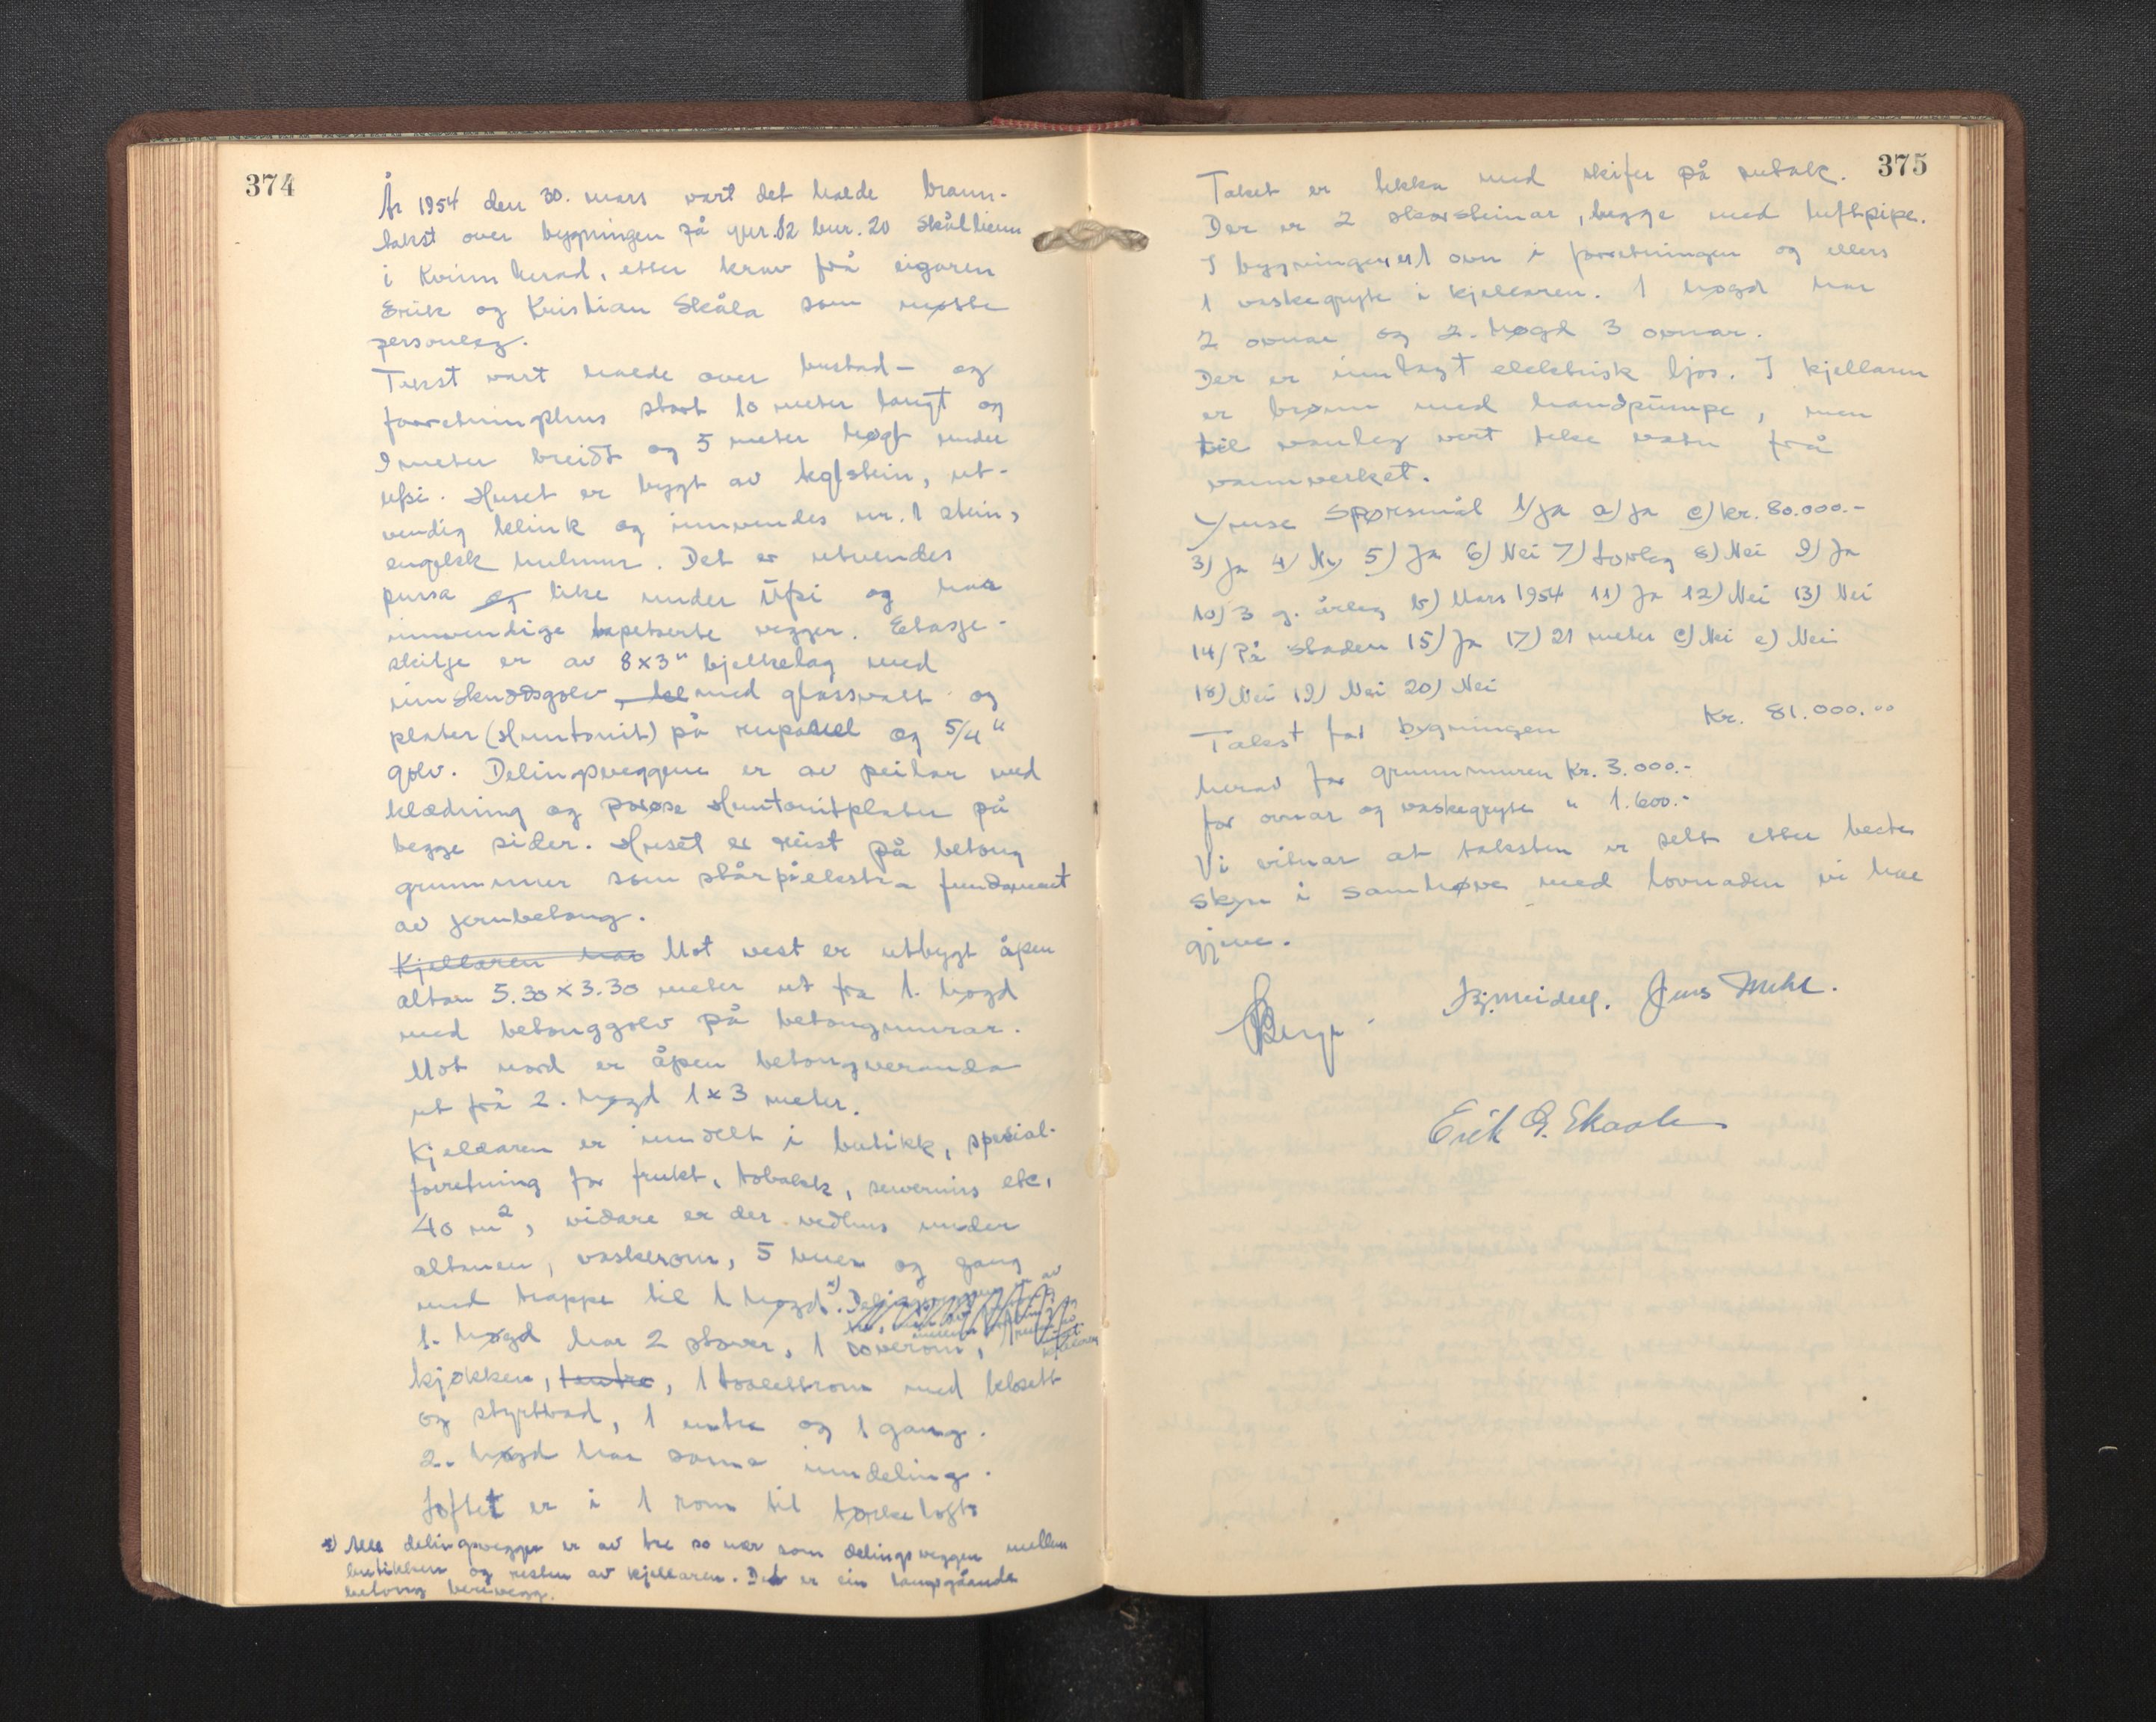 374
År 1954 den 30. mars vart det halde brann-
takst over bygningen på gnr. 82 bnr. 20 Skålheim
i Kvinnherad, etter krav frå eigaren
Erik og Kristian Skåla som møtte
personleg.
Takst vart halde over bustad- og
forretningshus stort 10 meter langt og
9 meter breidt og 5 meter høgt under
ufsi. Huset er bygt av teglstein, ut-
vendig klink og innvendes nr. 1 stein,
engelsk hulmur. Det er utvendes
pussa og like under ufsi og har
innvendige tapetserte vegger. Etasje-
skilje er av 8x3" bjelkelag med
innskuddsgolv med glassvatt og
plater (Huntonit) på rupanel og 5/4"
golv. Delingsveggene er av peilar med
klædning og porøse Huntonitplater på
begge sider. Huset er reist på betong
grunnmur som står på ekstra fundament
av jernbetong.
Kjellaren har Mot vest er utbygt åpen
altan 5.30 x 3.30 meter ut fra 1. høgd
med betonggolv på betongmurar.
Mot nord er åpen betongveranda
ut frå 2. høgd 1 x 3 meter.
Kjellaren er inndelt i butikk, spesial-
forretning for frukt, tobakk, etc,
40 m², vidare er der vedhus under
altanen, vaskerom, 5 buer og gang
med trappe til 1 høgd x).
1. høgd har 2 stover, 1 soverom,
kjøkken, 1 toalettrom med klosett
og styrtbad, 1 entre og 1 gang.
2. høgd har soma inndeling.
Loftet er i 1 rom til tørkelofts
x) Alle delingsvegger er av tre so nær som delingsveggen mellom
butikken og resten av kjellaren. Det er ein langsgåande
betong berevegg.
375
Taket er tekka med skifer på sutak.
Der er 2 skorsteinar, begge med luftpipe.
I bygningen er 1 ovn i forretningen og ellers
1 vaskegryte i kjellaren. 1 høgd har
2 ovnar og 2. høgd 3 ovnar.
Der er innlagt elektrisk ljos. I kjellaren
er brønn med handpumpe, men
til vanleg vert teke vatn frå
vannverket.
Ymse Spørsmål 1/ Ja a) Ja e) Kr. 80.000.-
3) Ja 4/ Ny 5) Ja 6) Nei 7) Forlag 8) Nei 9) Ja
10) 3 g. årleg b) Mars 1954 11) Ja 12) Nei 13) Nei
14/ På staden 15) Ja 17) 21 meter c) Nei e) Nei
18) Nei 19) Nei 20) Nei
Takst for bygningen Kr. 81.000.00
herav for grunnmuren Kr. 3.000.-
for ovnar og vaskegryte " 1.600.-
Vi vitnar at taksten er sett etter beste
skyn i samhøve med lovnaden vi har
gjeve.
Berge. Jens Mehl.
Erik G. Skaala